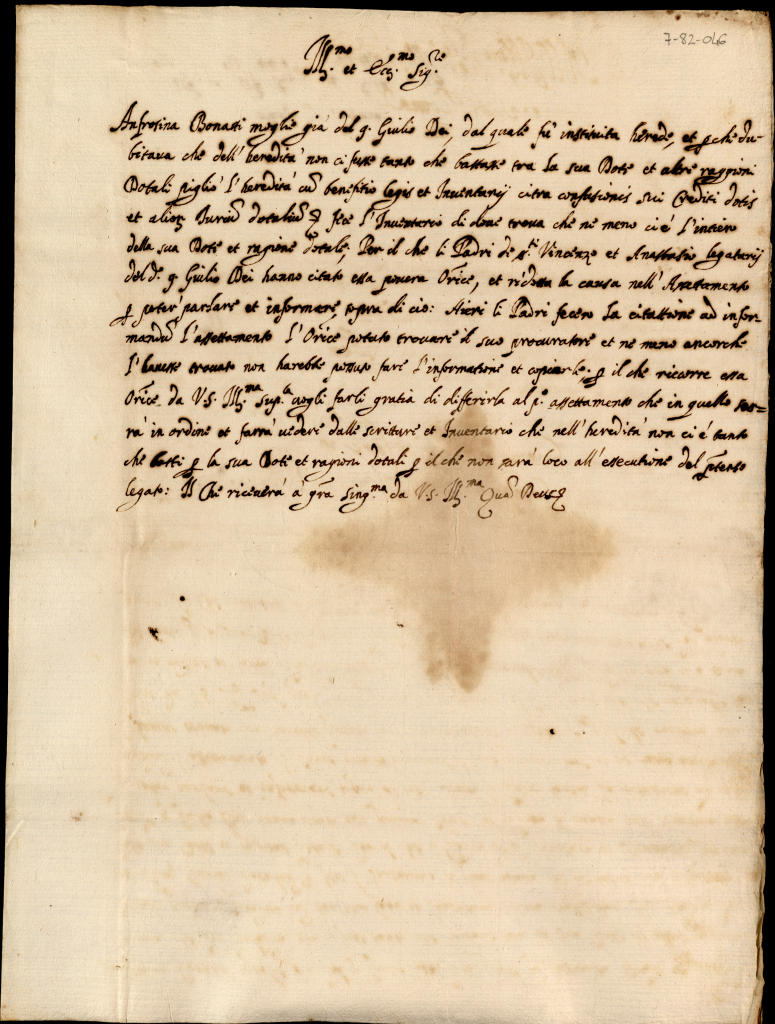 7-82-046
Ill.mo et Ecc.mo Sig.re
Anfrosina Bonasi moglie già del q. Giulio Dei, dal quale fù instituita herede, et p che du-
bitava che dell' heredità non ci fusse tanto che bastasse tra la sua Dote et altre raggioni
Dotali pigliò l' heredità cū benefitio legis et Inventarij citra confusionis sui Crediti dotis
et alior Juriū dotaliū fece l' Inventario di doue troua che ne meno ci é l' intiero
della sua Dote et ragione dotale; Per il che li Padri de s.ti Vincenzo et Anastasio legatarij
del d.o q. Giulio Dei hanno citato essa povera Orīce, et ridotta la causa nell' Assettamento
p poter parlare et informare sopra di cio: Hieri li Padri fecero la citattione ad infor-
mandū l' assettamento l' Orīce potuto trouare il suo procuratore et ne meno ancorche
l' hauesse trouato non harebbe possuto fare l' informatione et copiarle. p il che ricorre essa
Orīce da V.S. Ill.ma sup.la uogli farli gratia di differirla al p.o assettamento che in quello sar=
rà in ordine et farrà uedere dalle scritture et Inventario che nell' heredità non ci é tanto
che basti p la sua Dote et ragioni dotali p il che non sarà loco all' essecutione del pteso
legato: Il Che riceuerà à gra sing.ma da V.S. Ill.ma Quā Deus